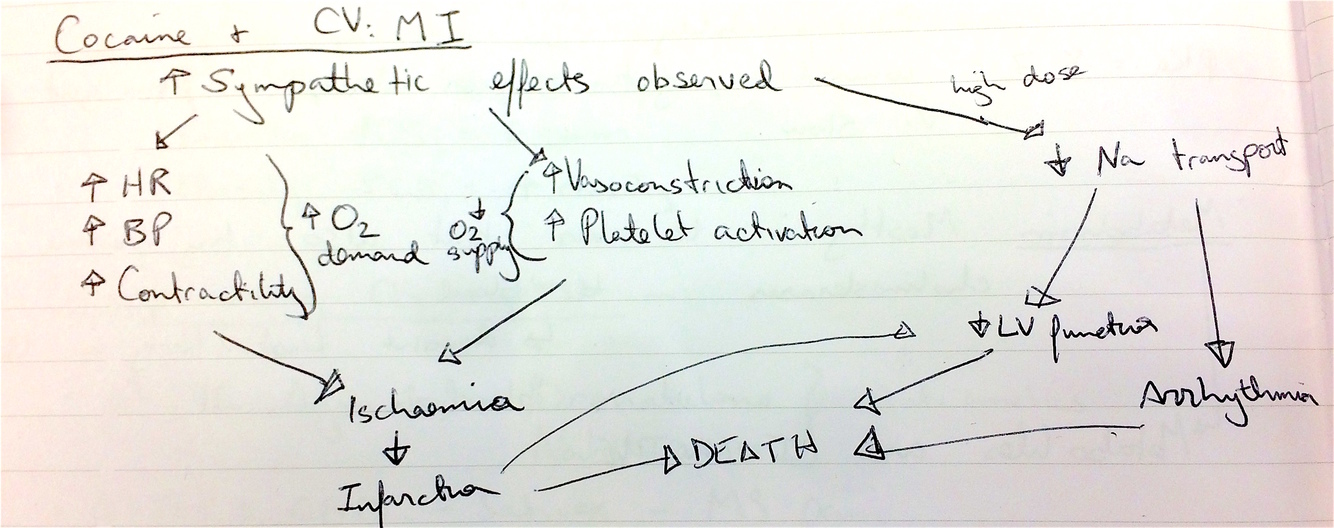 Cocaine + CV: MI
↑ Sympathetic effects observed
high dose
↓ Na transport
↑ HR
↑ BP
↑ Contractility
↑ O2
demand
↓
O2
supply
↑ Vasoconstriction
↑ Platelet activation
↓ LV function
Ischaemia
Arrhythmia
↓
Infarction
DEATH